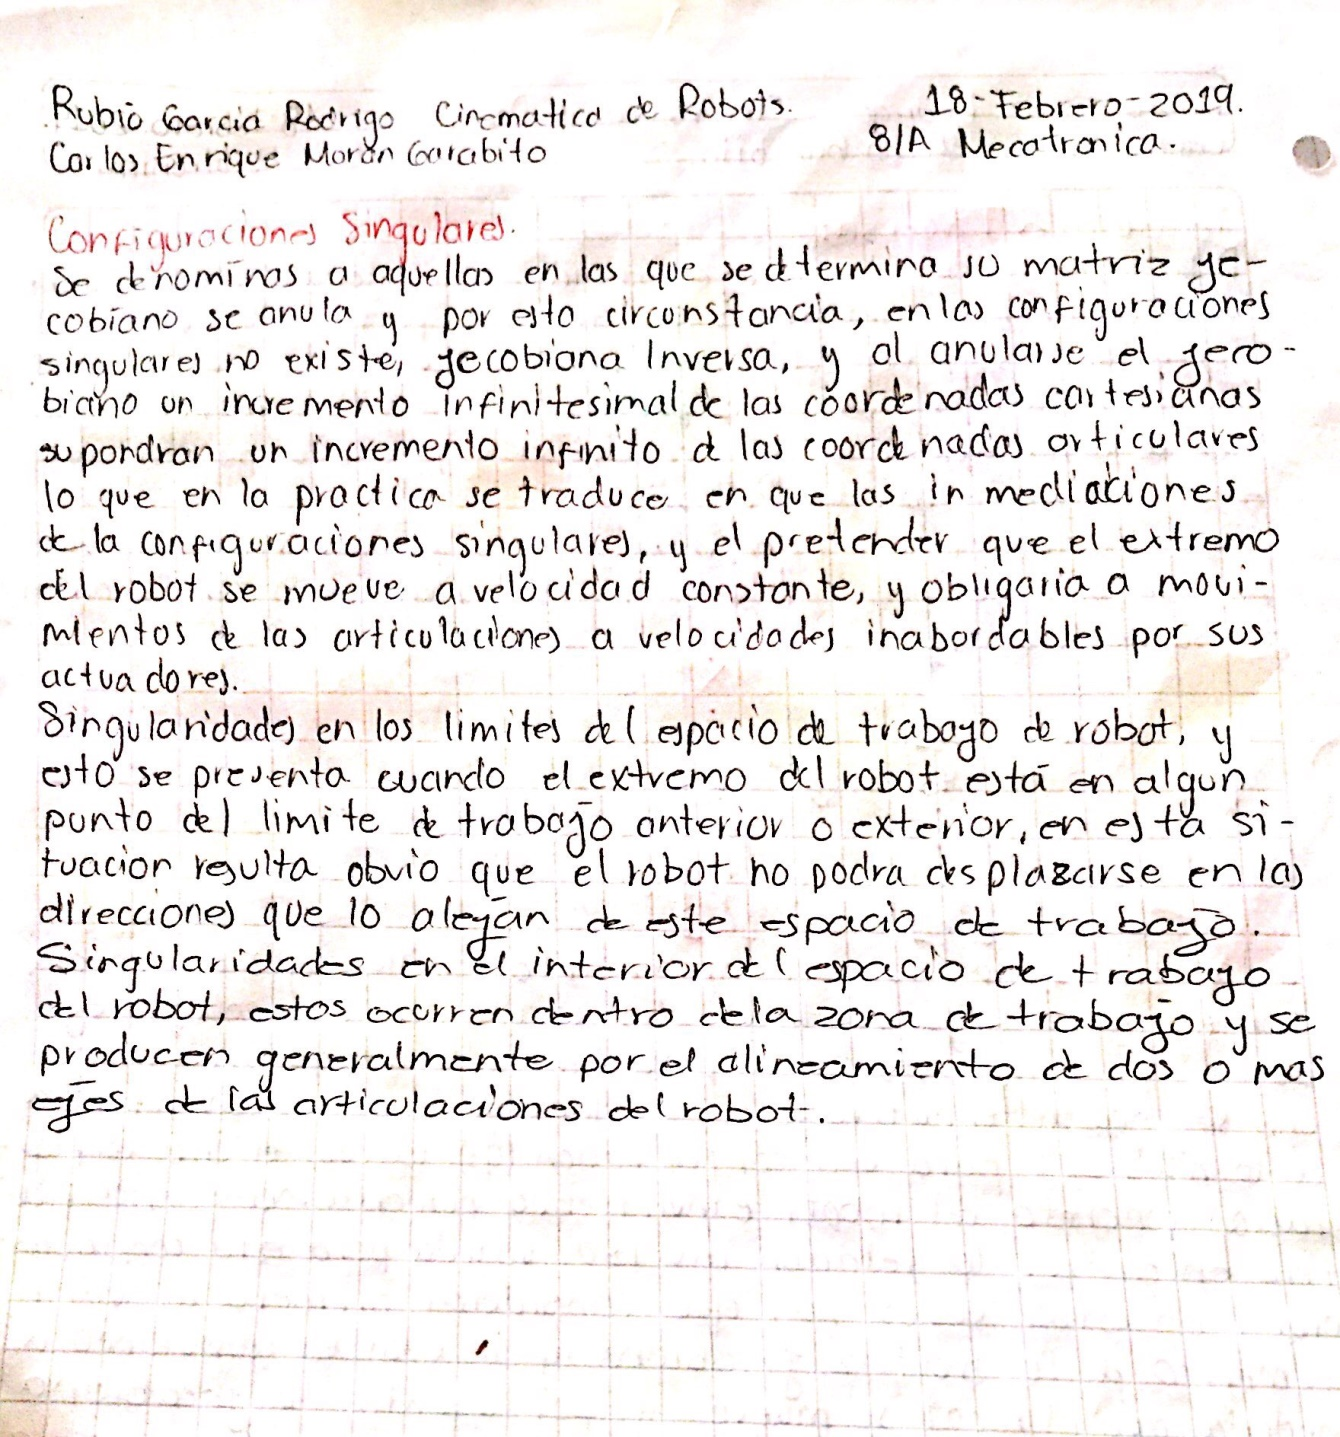 Rubio Garcia Rodrigo Cinematica de Robots. 18-Febrero-2019.
Carlos Enrique Morán Garabito 8/A Mecatronica.
Configuraciones Singulares.
Se denominas a aquellas en las que se determina su matriz je-
cobiano se anula y por esta circunstancia, en las configuraciones
singulares no existe, jecobiana Inversa, y al anularse el jero-
biano un incremento infinitesimal de las coordenadas cartesianas
supondran un incremento infinito de las coordenadas articulares
lo que en la practica se traduce en que las inmediaciones
de la configuraciones singulares, y el pretender que el extremo
del robot se mueve a velocidad constante, y obligaria a movi-
mientos de las articulaciones a velocidades inabordables por sus
actuadores.
Singularidades en los limites del espacio de trabajo de robot, y
esto se presenta cuando el extremo del robot está en algun
punto del limite de trabajo anterior o exterior, en esta si-
tuacion resulta obvio que el robot no podra desplazarse en las
direcciones que lo alejan de este espacio de trabajo.
Singularidades en el interior del espacio de trabajo
del robot, estos ocurren dentro de la zona de trabajo y se
producen generalmente por el alineamiento de dos o mas
ejes de las articulaciones del robot.